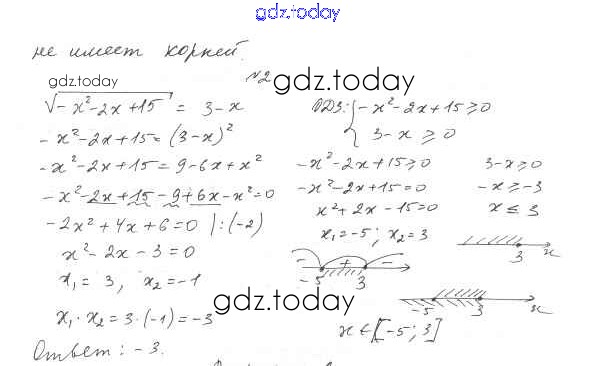 gdz.today
не имеет корней.
№2
gdz.today
gdz.today
√-x²-2x+15 = 3-x
-x²-2x+15=(3-x)²
-x²-2x+15=9-6x+x²
-x²-2x+15-9+6x-x²=0
-2x²+4x+6=0 |:(-2)
x²-2x-3=0
x₁=3, x₂=-1
x₁·x₂=3·(-1)=-3
Ответ: -3.
ОДЗ: { -x²-2x+15≥0
3-x≥0
-x²-2x+15≥0
-x²-2x+15=0
x²+2x-15=0
x₁=-5; x₂=3
3-x≥0
-x≥-3
x≤3
3 x
- + -
-5 3
-5 3 x
x∈[-5;3]
gdz.today